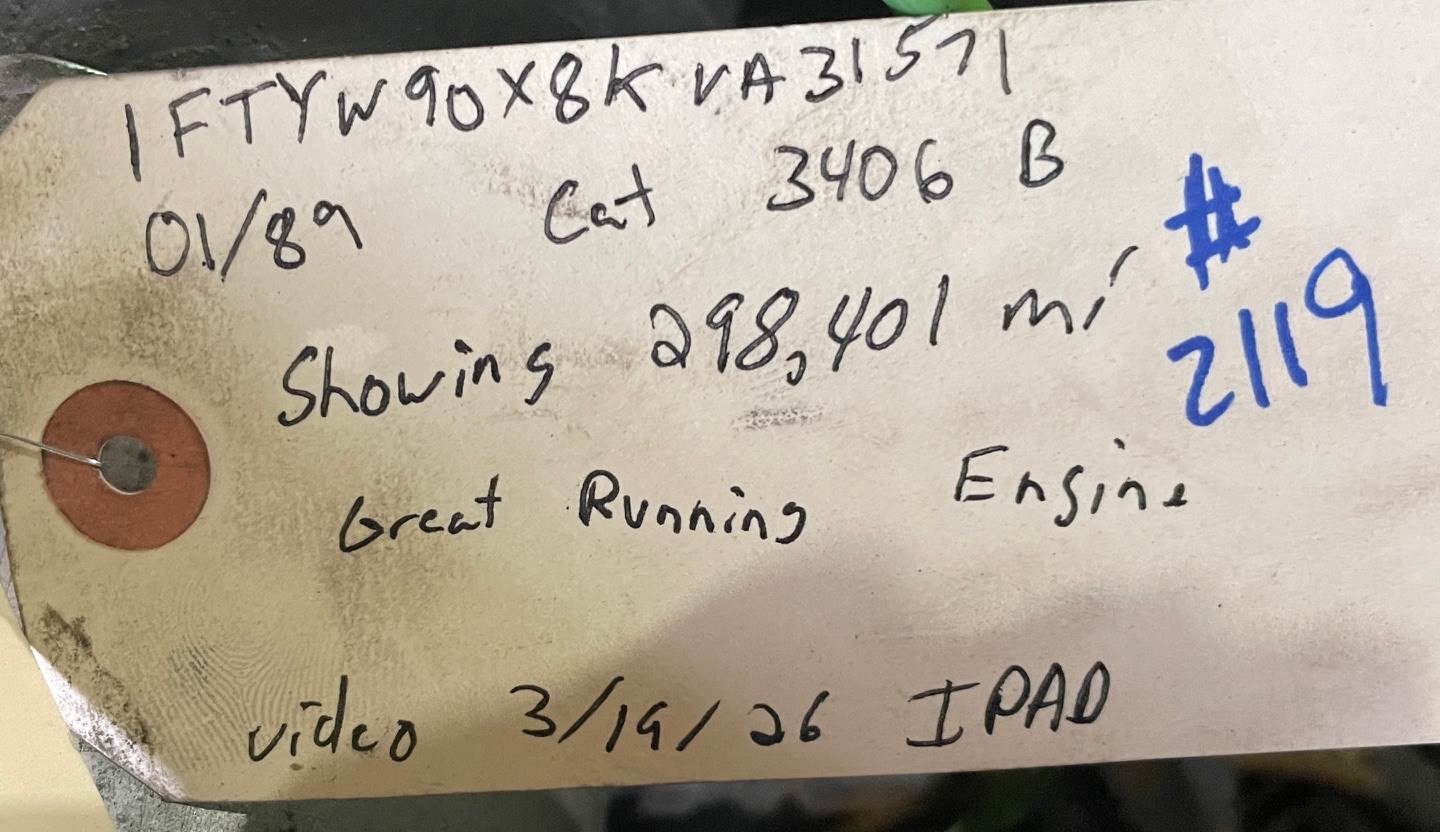 1FTYW90X8KVA31571
01/89 Cat 3406 B
Showing 298,401 mi
#
2119
Great Running Engine
video 3/19/26 IPAD